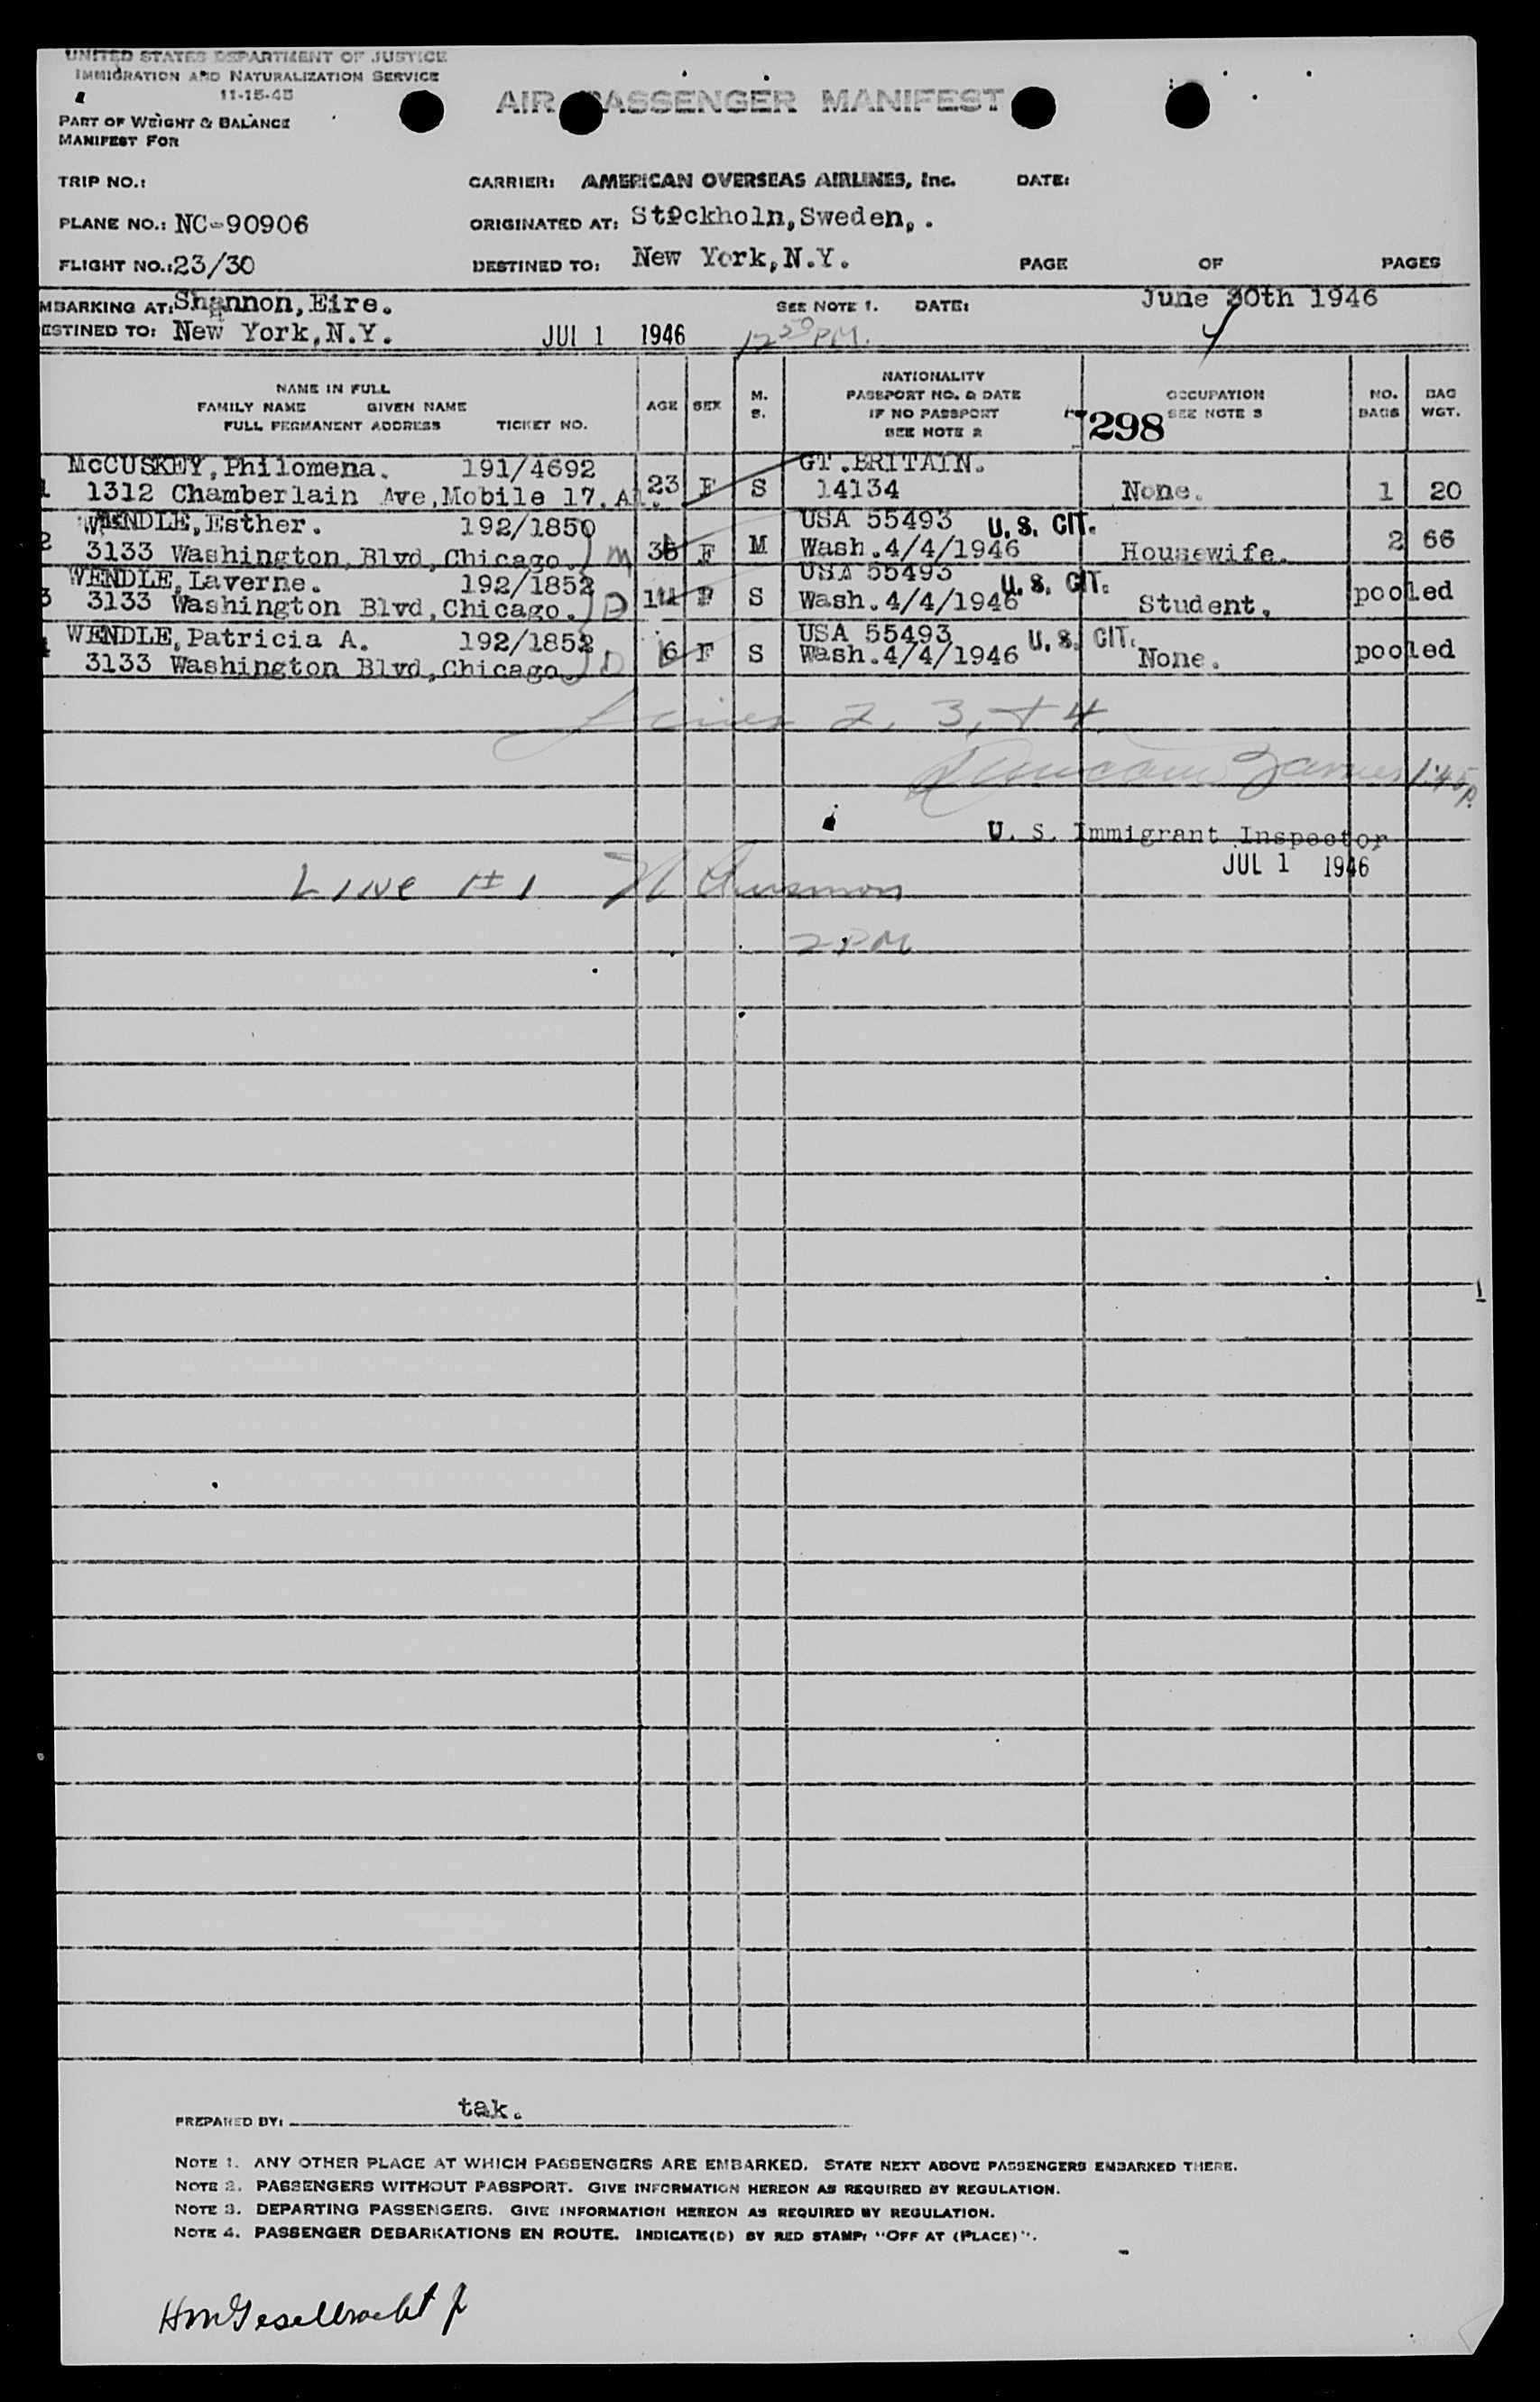 UNITED STATES DEPARTMENT OF JUSTICE
IMMIGRATION AND NATURALIZATION SERVICE
11-15-45
AIR PASSENGER MANIFEST
PART OF WEIGHT & BALANCE
MANIFEST FOR
TRIP NO.: CARRIER: AMERICAN OVERSEAS AIRLINES, Inc. DATE:
PLANE NO.: NC-90906 ORIGINATED AT: Stockholn, Sweden,.
FLIGHT NO.: 23/30 DESTINED TO: New York, N.Y. PAGE OF PAGES
MBARKING AT: Shannon, Eire. SEE NOTE 1. DATE: June 30th 1946
ESTINED TO: New York, N.Y. JUL 1 1946 12 50 PM. 4
NAME IN FULL
FAMILY NAME GIVEN NAME
FULL PERMANENT ADDRESS TICKET NO. AGE SEX M. S. NATIONALITY PASSPORT NO. & DATE IF NO PASSPORT SEE NOTE 2 298 OCCUPATION SEE NOTE 3 NO. BAGS BAG WGT.
1 McCUSKEY, Philomena. 191/4692 GT.BRITAIN.
1312 Chamberlain Ave, Mobile 17. Al. 23 F S 14134 None. 1 20
2 WENDLE, Esther. 192/1850 USA 55493 U. S. CIT.
3133 Washington, Blvd, Chicago. M F M Wash.4/4/1946 Housewife. 2 66
3 WENDLE, Laverne. 192/1852 USA 55493 U. S. CIT.
3133 Washington Blvd, Chicago. D 14 F S Wash.4/4/1946 Student. pooled
4 WENDLE, Patricia A. 192/1852 USA 55493 U. S. CIT.
3133 Washington Blvd, Chicago. D 6 F S Wash.4/4/1946 None. pooled
Lines 2, 3, + 4
James 1:45 P.
U. S. Immigrant Inspector
JUL 1 1946
LINE #1
2 PM
PREPARED BY: tak.
NOTE 1. ANY OTHER PLACE AT WHICH PASSENGERS ARE EMBARKED. STATE NEXT ABOVE PASSENGERS EMBARKED THERE.
NOTE 2. PASSENGERS WITHOUT PASSPORT. GIVE INFORMATION HEREON AS REQUIRED BY REGULATION.
NOTE 3. DEPARTING PASSENGERS. GIVE INFORMATION HEREON AS REQUIRED BY REGULATION.
NOTE 4. PASSENGER DEBARKATIONS EN ROUTE. INDICATE(D) BY RED STAMP: "OFF AT (PLACE)".